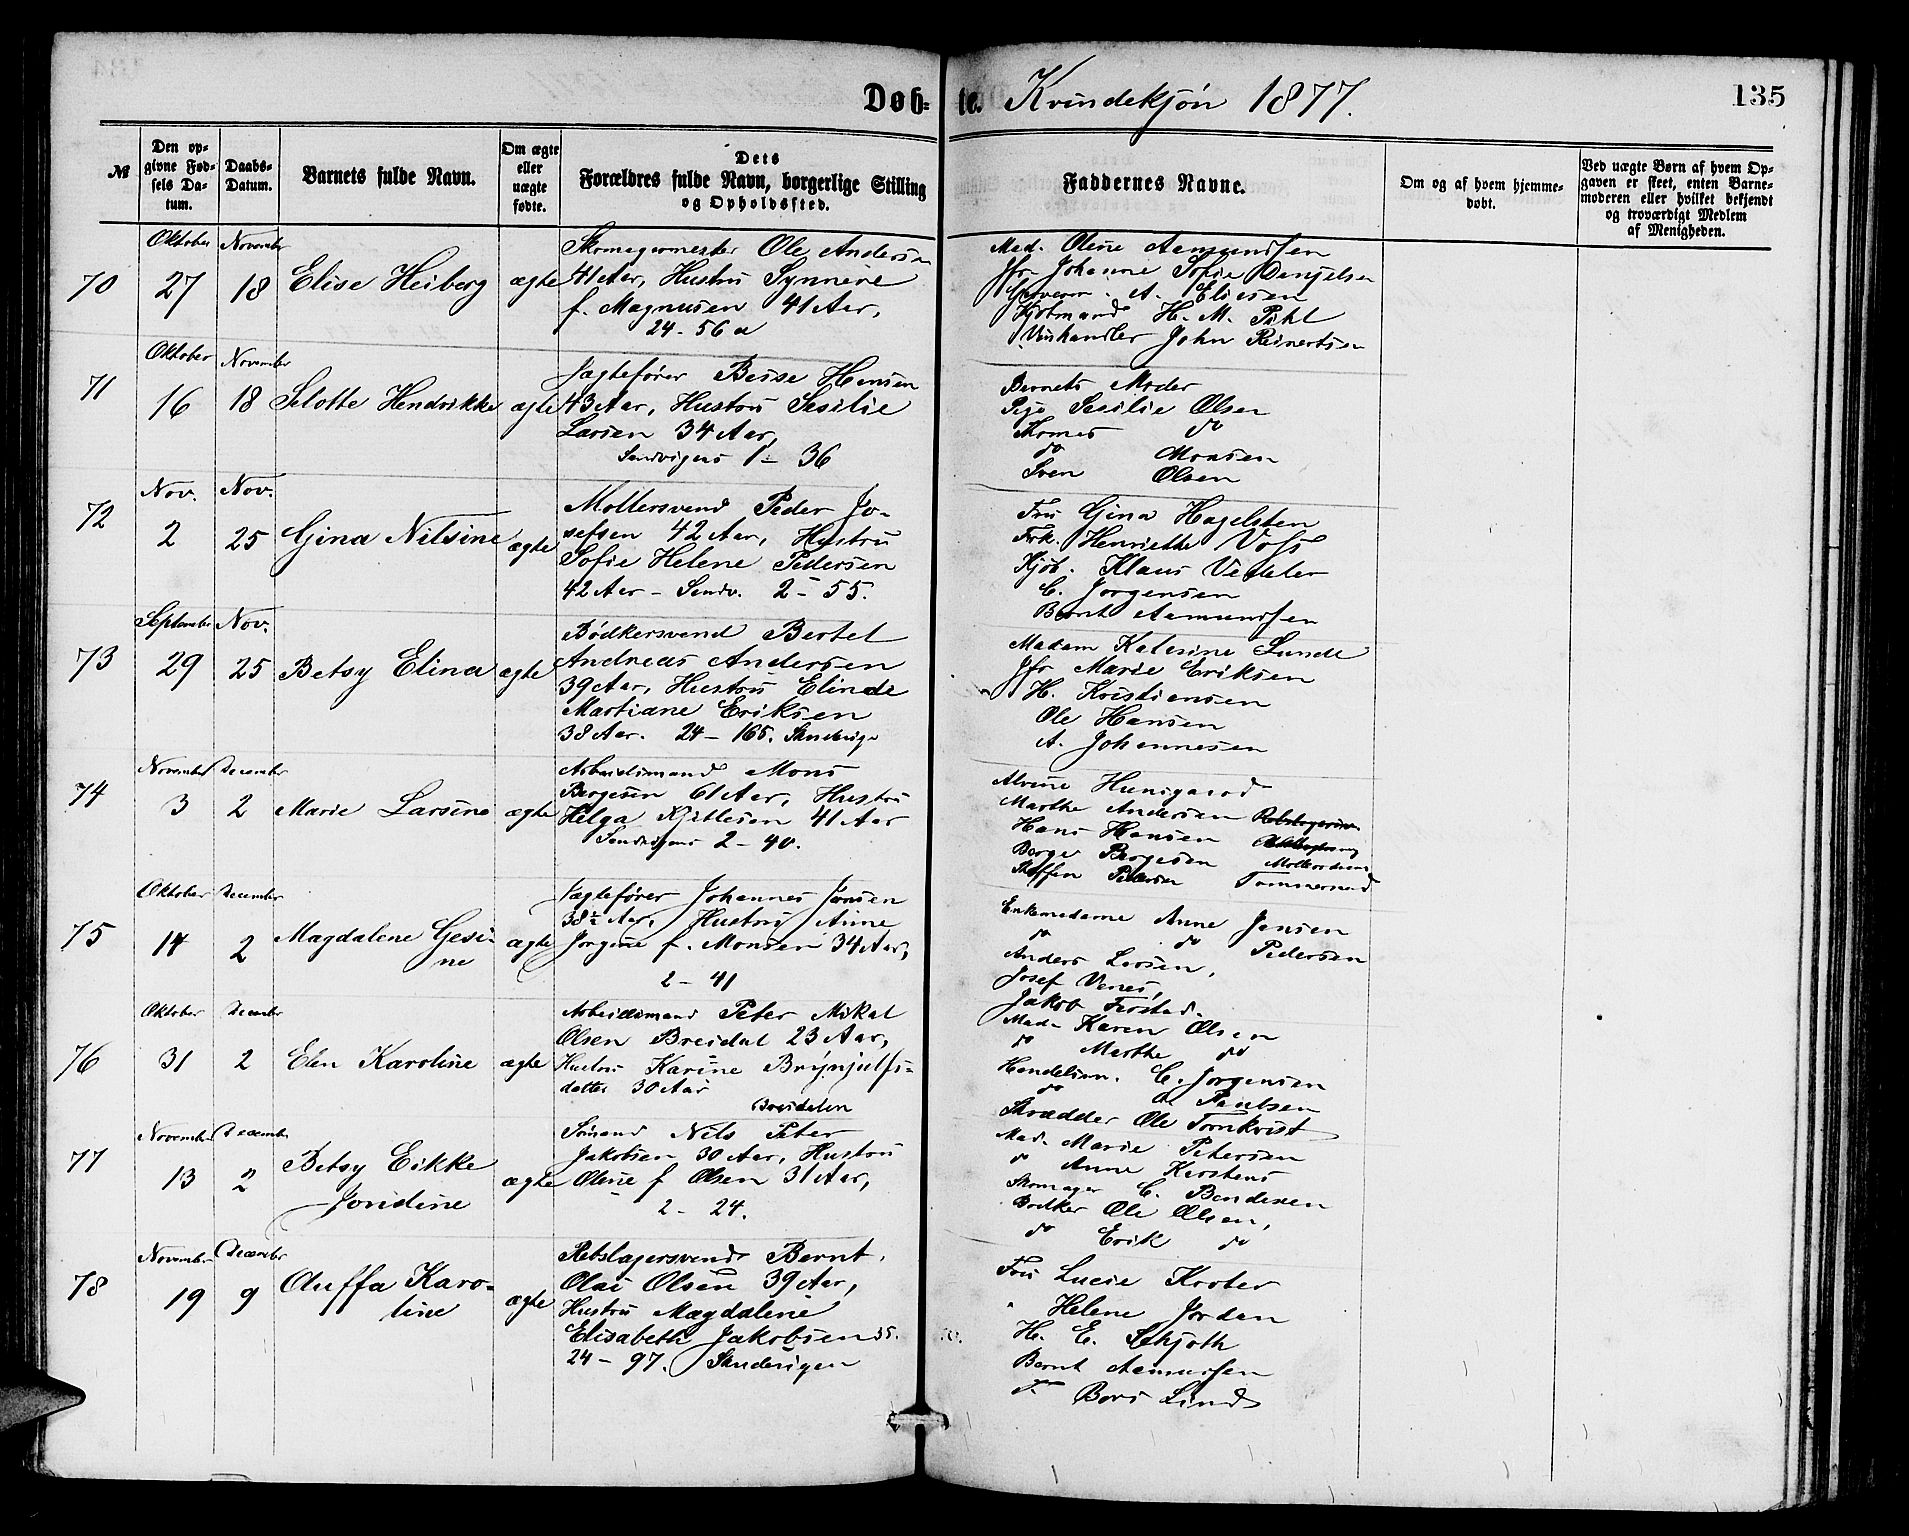 Døb-te. Kvindekjøn 1877.
135
№
Den opgivne Fødsels Datum.
Daabs-Datum.
Barnets fulde Navn.
Om ægte eller uægte fødte.
Dets Forældres fulde Navn, borgerlige Stilling og Opholdssted.
Faddernes Navne.
Om og af hvem hjemmedøbt.
Ved uægte Børn af hvem Opgaven er skeet, enten Barnemoderen eller hvilket bekjendt og troværdigt Medlem af Menigheden.
70
Oktober 27
November 18
Elise Heiberg
ægte
Skomagermester Ole Andersen
41 Aar, Hustru Synneve
f. Magnusen 41 Aar,
24-56a
Mad. Oline Aamundsen
Jfr. Johanne Sofie Danjelsen
A. Eliesen
H. M. Pihl
Vinhandler John Reinertsen
71
Oktober 16
November 18
Selotte Hendrikke
ægte
Jægtefører Beise Hansen
43 Aar, Hustru Sesilie
Larsen 34 Aar,
Sandvigen 1-36
Barnets Moder
Pige Sesilie Olsen
Thomas do
do Monsen
Sven Olsen
72
Nov. 2
Nov. 25
Gina Nilsine
ægte
Møllersvend Peder Jo-
sefsen 42 Aar, Hustru
Sofie Helene Pedersen
42 Aar - Sandv. 2-55.
Fru Gina Hagelsten
Frk. Henriette Voss
Kjøb. Klaus Vedeler
C. Jørgensen
Bernt Aamundsen
73
September 29
Nov. 25
Betsy Elina
ægte
Bødkersvend Bertel
Andreas Andersen
39 Aar, Hustru Elinde
Martiane Eriksen
38 Aar. 24-165. Sandvigen
Madam Katerine Lunde
Jfr Marie Eriksen
H. Kristiansen
Ole Hansen
A. Johannesen
74
November 3
December 2
Marie Larsine
ægte
Arbeidsmand Mons
Børgesen 61 Aar, Hustru
Helga Kjittlesen 41 Aar
Sandvigen 2-40.
Alvine
Marthe Andersen
Hans Hansen
Børge Børgesen
Steffen Pedersen Tømmermand
75
Oktober 14
December 2
Magdalene Gesi-
ne
ægte
Jægtefører Johannes Jonsen
38½ Aar, Hustru Anne
Jørgine f. Monsen 34 Aar,
2-41
Enkemadame Anne Jensen
do do Pedersen
Anders Larsen,
Josef Venes,
Jakob Ferstad.
76
Oktober 31
December 2
Elen Karoline
ægte
Arbeidsmand Peter Mikal
Olsen Breidal 23 Aar,
Hustru Karine Brynjulfs-
datter 30 Aar
Breidalen
Mad. Karen Olsen
do Marthe do
Handelsm. C. Jørgensen
do Paulsen
Skrædder Ole Tornkvist
77
November 13
December 2
Betsy Eikke
Joridine
ægte
Sømand Nils Peter
Jakobsen 30 Aar, Hustru
Oline f. Olsen 31 Aar,
2-24.
Mad. Marie Petersen
do Anne Karstens
Skomager C. Bendixen
Bødker Ole Olsen,
do Erik do
78
November 19
December 9
Auffa Karo-
line
ægte
Rebslagersvend Bernt
Olai Olsen 39 Aar,
Hustru Magdalene
Elisabeth Jakobsen 35.
24-97. Sandvigen
Fru Lucie Krøter
" Helene Jordan
H. E. Schjøth
Bernt Aamundsen
T. Bors Lind